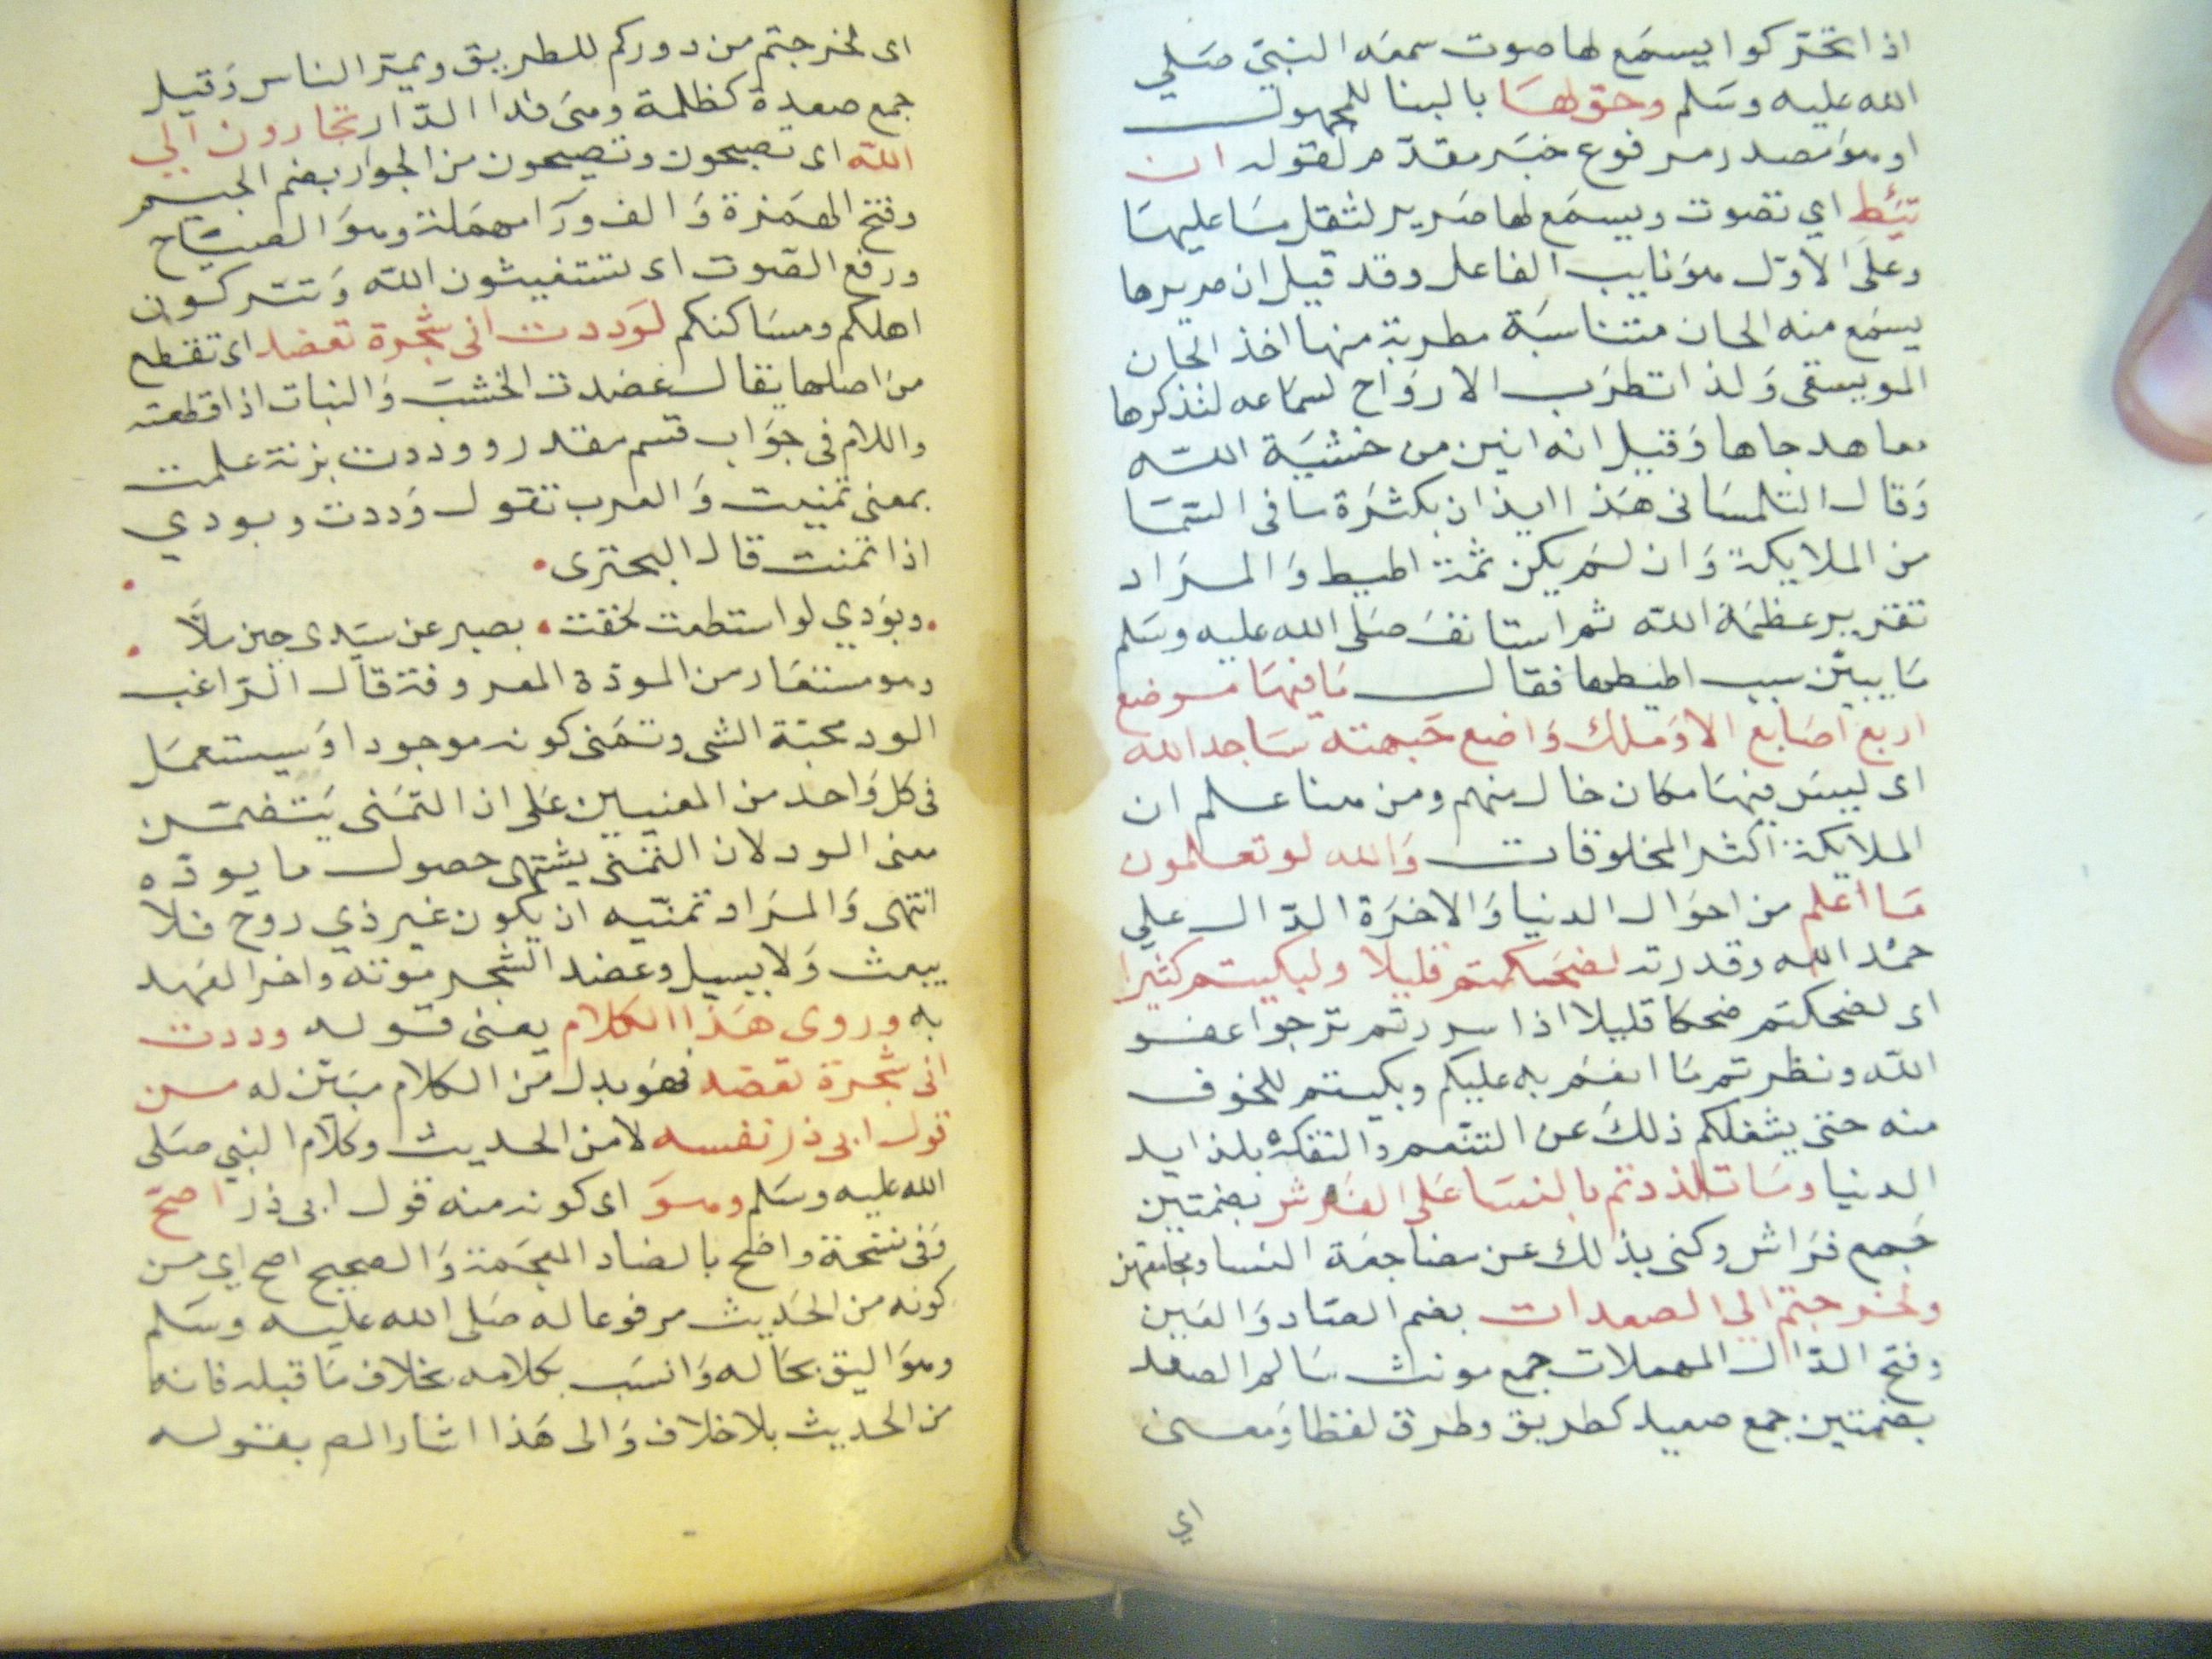 اذا تحركوا يسمع لها صوت سمعه النبي صلي
الله عليه وسلم وحق لها بالبنا للمجهول
او هو مصدر مرفوع خبر مقدم لقوله ان
تئط اي تصوت ويسمع لها صرير لثقل ما عليها
وعلى الاول هو نايب الفاعل وقد قيل ان صريرها
يسمع منه الحان متناسبة مطربة منها اخذ الحان
الموسيقى ولذا تطرب الارواح لسماعه لتذكرها
معاهد جاها وقيل انه انين من خشية الله
وقال التلمساني هذا ايذان بكثرة ما في السما
من الملايكة وان لم يكن ثمة اطيط والمراد
تقرير عظمة الله ثم استانف صلى الله عليه وسلم
ما يبين سبب اطيطها فقال ما فيها موضع
اربع اصابع الا وملك واضع جبهته ساجدا لله
اى ليس فيها مكان خال منهم ومن هنا علم ان
الملايكة اكثر المخلوقات والله لو تعلمون
ما اعلم من احوال الدنيا والاخرة الدال علي
حمد الله وقدرته لضحكتم قليلا ولبكيتم كثيرا
اى لضحكتم ضحكا قليلا اذا سررتم ترجوا عفو
الله ونظرتم ما انعم به عليكم وبكيتم للخوف
منه حتى يشغلكم ذلك عن التنعم والتفكه بلذايد
الدنيا وما تلذذتم بالنسا على الفرش بضمتين
جمع فراش وكنى بذلك عن مضاجعة النسا ومجامعتهن
ولخرجتم الي الصعدات بضم الصاد والعين
وفتح الدال المهملات جمع مونث سالم الصعد
بضمتين جمع صعيد كطريق وطرق لفظا ومعنى
اي
اى لخرجتم من دوركم للطريق وممر الناس وقيل
جمع صعدة كظلمة وهى فنا الدار تجارون الي
الله اى تصيحون من الجوار بضم الجيم
وفتح الهمزة والف ورا مهملة وهو الصياح
ورفع الصوت اى تستغيثون الله وتتركون
اهلكم ومساكنكم لوددت انى شجرة تعضد اى تقطع
من اصلها يقال عضدت الخشب والنبات اذا قطعته
واللام فى جواب قسم مقدر ووددت بزنة علمت
بمعنى تمنيت والعرب تقول وددت وبودي
اذا تمنت قال البحترى
وبودي لو استطعت لخففت بصبر عن سيدى حين ملا
وهو مستعار من المودة المعروفة قال الراغب
الود محبة الشى وتمنى كونه موجودا ويستعمل
فى كل واحد من المعنيين على ان التمنى يتضمن
معنى الود لان التمنى يشتهى حصول ما يوده
انتهى والمراد تمنيه ان يكون غير ذي روح فلا
يبعث ولا يسيل وعضد الشجر موته واخر العهد
به وروى هذا الكلام يعنى قوله وددت
انى شجرة تعضد فهو بدل من الكلام مبين له من
قول ابى ذر نفسه لا من الحديث وكلام النبي صلى
الله عليه وسلم وهو اى كونه منه قول ابى ذر اصح
وفى نسخة واضح بالضاد المعجمة والصحيح اصح اي من
كونه من الحديث مرفوعا له صلى الله عليه وسلم
وهو اليق بحاله وانسب بكلامه بخلاف ما قبله فانه
من الحديث بلا خلاف والى هذا اشار المص بقوله